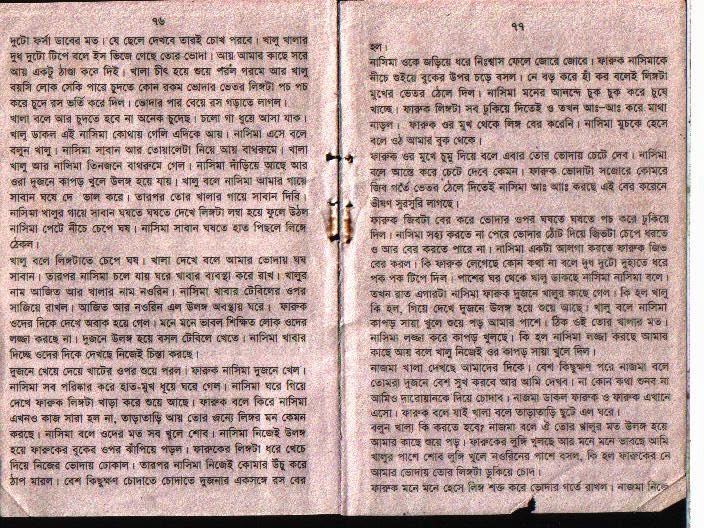 ৭৬
দুটো ফর্সা ডাবের মত। যে ছেলে দেখবে তারই চোখ পরবে। খালু খালার
দুধ দুটো টিপে বলে ইস ভিজে গেছে তোর ভোদা। আয় আমার কাছে সরে
আয় একটু ঠাণ্ডা করে দিই। খালা চীৎ হয়ে শুয়ে পরল গরমে আর খালু
বয়সি লোক সেকি পারে চুদতে কোন রকম ভোদার ভেতর লিঙ্গটা পচ পচ
করে চুদে রস ভর্তি করে দিল। ভোদার পার বেয়ে রস গড়াতে লাগল।
খালা বলে আর চুদতে হবে না অনেক চুদেছ। চলো গা ধুয়ে আসা যাক।
খালু ডাকল এই নাসিমা কোথায় গেলি এদিকে আয়। নাসিমা এসে বলে
বলুন খালু। নাসিমা সাবান আর তোয়ালেটা নিয়ে আয় বাথরুমে। খালা
খালু আর নাসিমা তিনজনে বাথরুমে গেল। নাসিমা দাঁড়িয়ে আছে আর
ওরা দুজনে কাপড় খুলে উলঙ্গ হয়ে যায়। খালু বলে নাসিমা আমার গায়ে
সাবান ঘষে দে ভাল করে। তারপর তোর খালার গায়ে সাবান দিবি।
নাসিমা খালুর গায়ে সাবান ঘষতে ঘষতে দেখে লিঙ্গটা লম্বা হয়ে ফুলে উঠল
নাসিমা পেটে নীচে চেপে ঘষ। নাসিমা সাবান ঘষতে হাত পিছলে লিঙ্গে
ঠেকল।
খালু বলে লিঙ্গটাতে চেপে ঘষ। খালা দেখে বলে আমার ভোদায় ঘষ
সাবান। তারপর নাসিমা চলে যায় ঘরে খাবার ব্যবস্থা করে রাখ। খালুর
নাম আজিত আর খালার নাম নওরিন। নাসিমা খাবার টেবিলের ওপর
সাজিয়ে রাখল। আজিত আর নওরিন এল উলঙ্গ অবস্থায় ঘরে। ফারুক
ওদের দিকে দেখে অবাক হয়ে গেল। মনে মনে ভাবল শিক্ষিত লোক ওদের
লজ্জা করছে না। দুজনে উলঙ্গ হয়ে বসল টেবিলে খেতে। নাসিমা খাবার
দিচ্ছে ওদের দিকে দেখছে নিজেই চিন্তা করছে।
দুজনে খেয়ে দেয়ে খাটের ওপর শুয়ে পরল। ফারুক নাসিমা দুজনে খেল।
নাসিমা সব পরিষ্কার করে হাত-মুখ ধূয়ে ঘরে গেল। নাসিমা ঘরে গিয়ে
দেখে ফারুক লিঙ্গটা খাড়া করে শুয়ে আছে। ফারুক বলে কিরে নাসিমা
এখনও কাজ সারা হল না, তাড়াতাড়ি আয় তোর জন্যে লিঙ্গর মন কেমন
করছে। নাসিমা বলে ওদের মত সব খুলে শোব। নাসিমা নিজেই উলঙ্গ
হয়ে ফারুকের বুকের ওপর ঝাঁপিয়ে পড়ল। ফারুকের লিঙ্গটা ধরে খেচে
দিয়ে নিজের ভোদায় ঢোকাল। তারপর নাসিমা নিজেই কোমার উঁচু করে
ঠাপ মারল। বেশ কিছুক্ষণ চোদাতে চোদাতে দুজনার একসঙ্গে রস বের
৭৭
হল।
নাসিমা ওকে জড়িয়ে ধরে নিঃশ্বাস ফেলে জোরে জোরে। ফারুক নাসিমাকে
নীচে শুইয়ে বুকের উপর চড়ে বসল। নে বড় করে হাঁ কর বলেই লিঙ্গটা
মুখের ভেতর ঠেলে দিল। নাসিমা মনের আনন্দে চুক চুক করে চুষে
খাচ্ছে। ফারুক লিঙ্গটা সব ঢুকিয়ে দিতেই ও তখন আঃ-আঃ করে মাথা
নাড়ল। ফারুক ওর মুখ থেকে লিঙ্গ বের করেনি। নাসিমা মুচকে হেসে
বলে ওঠ আমার বুক থেকে।
ফারুক ওর মুখে চুমু দিয়ে বলে এবার তোর ভোদায় চেটে দেব। নাসিমা
বলে আস্তে করে চেটে দেবে কেমন। ফারুক ভোদাটা সজোরে কোমরে
জিব গর্তে ভেতর ঠেলে দিতেই নাসিমা আঃ আাঃ করছে এই বের করেনে
ভীষণ সুরসুরি লাগছে।
ফারুক জিবটা বের করে ভোদার ওপর ঘষতে ঘষতে পচ করে ঢুকিয়ে
দিল। নাসিমা সহ্য করতে না পেরে ভোদার ঠোঁট দিয়ে জিভটা চেপে ধরতে
ও আর বের করতে পারে না। নাসিমা একটা আলগা করতে ফারুক জিভ
বের করল। কি ফারুক লেগেছে কোন কথা না বলে দুধ দুটো দুহাতে ধরে
পক পক টিপে দিল। পাশের ঘর থেকে খালু ডাকছে নাসিমা নাসিমা বলে।
তখন রাত এগারটা নাসিমা ফারুক দুজনে খালুর কাছে গেল। কি হল খালু
কি হল, গিয়ে দেখে দুজনে উলঙ্গ হয়ে শুয়ে আছে। খালু বলে নাসিমা
কাপড় সায়া খুলে শুয়ে পড় আমার পাশে। ঠিক ওই তোর খালার মত।
নাসিমা লজ্জা করে কাপড় খুলছে। কি হল নাসিমা লজ্জা করছে আমার
কাছে আয় বলে খালু নিজেই ওর কাপড় সায়া খুলে দিল।
নাজমা খালা দেখছে আমাদের দিকে। বেশ কিছুক্ষণ পরে নাজমা বলে
তোমরা দুজনে বেশ সুখ করবে আর আমি দেখব। না কোন কথা শুনব না
আমিও দারোয়ানকে দিয়ে চোদাব। নাজমা ডাকল ফারুক ও ফারুক এখানে
এসো। ফারুক বলে যাই খালা বলে তাড়াতাড়ি ছুটে এল ঘরে।
বলুন খালা কি করতে হবে? নাজমা বলে ঐ তোর খালুর মত উলঙ্গ হয়ে
আমার কাছে শুয়ে পড়। ফারুকের লুঙ্গি খুলছে আর মনে মনে ভাবছে আমি
খালুর পাশে শোব লুঙ্গি খুলে নওরিনের পাশে বসল, কি হল ফারুকের নে
আমার ভোদায় তোর লিঙ্গটা ঢুকিয়ে চোদ।
ফারুক মনে মনে হেসে লিঙ্গ শক্ত করে ভোদার গর্তে রাখল। নাজমা নিজে